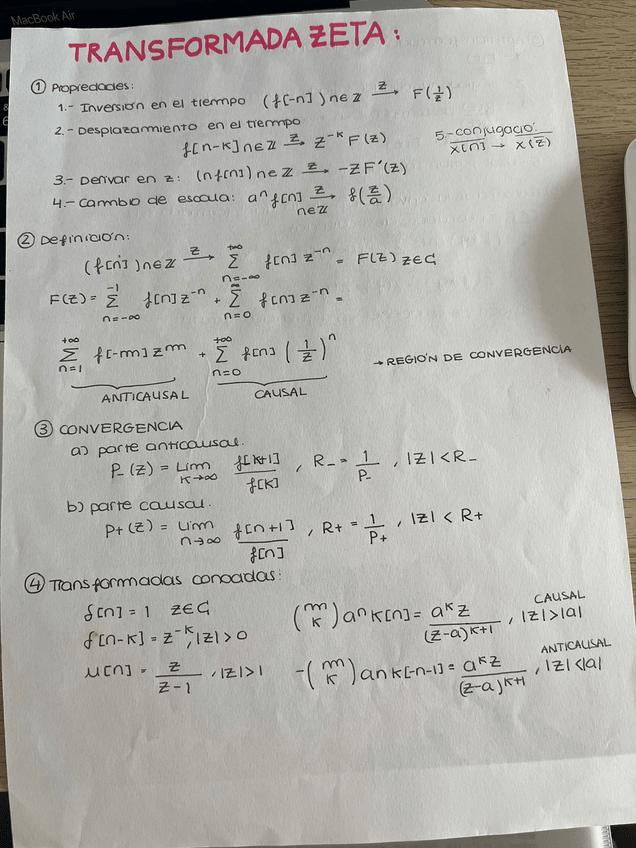 MacBook Air
TRANSFORMADA ZETA:
① Propiedades:
1.- Inversión en el tiempo (f[-n])n∈ℤ →ᶻ F(1/z)
2.- Desplazamiento en el tiempo
f[n-k]n∈ℤ →ᶻ z^-k F(z)
5.-conjugació:
x̅[n] → x̅(z̅)
3.- Derivar en z: (nf[n])n∈ℤ →ᶻ -zF'(z)
4.- Cambio de escala: a^n f[n] →ᶻ f(z/a)
n∈ℤ
② Definición:
(f[n])n∈ℤ →ᶻ Σ_{n=-∞}^{+∞} f[n] z^-n = F(z) z∈ℂ
F(z) = Σ_{n=-∞}^{-1} f[n] z^-n + Σ_{n=0}^{∞} f[n] z^-n =
Σ_{n=1}^{+∞} f[-m] z^m + Σ_{n=0}^{+∞} f[n] (1/z)^n
→ REGIÓN DE CONVERGENCIA
ANTICAUSAL CAUSAL
③ CONVERGENCIA
a) parte anticausal.
P_(z) = Lim_{k→∞} f[k+1]/f[k], R_ = 1/P_, |z| < R_
b) parte causal.
P+(z) = Lim_{n→∞} f[n+1]/f[n], R+ = 1/P+, |z| < R+
④ Transformadas conocidas:
f[n] = 1 z∈ℂ
f[n-k] = z^-k, |z| > 0
u[n] = z/(z-1), |z| > 1
CAUSAL
(m/k) a^n k[n] = a^k z/(z-a)^{k+1}, |z| > |a|
ANTICAUSAL
-(m/k) an k[-n-1] = a^k z/(z-a)^{k+1}, |z| < |a|